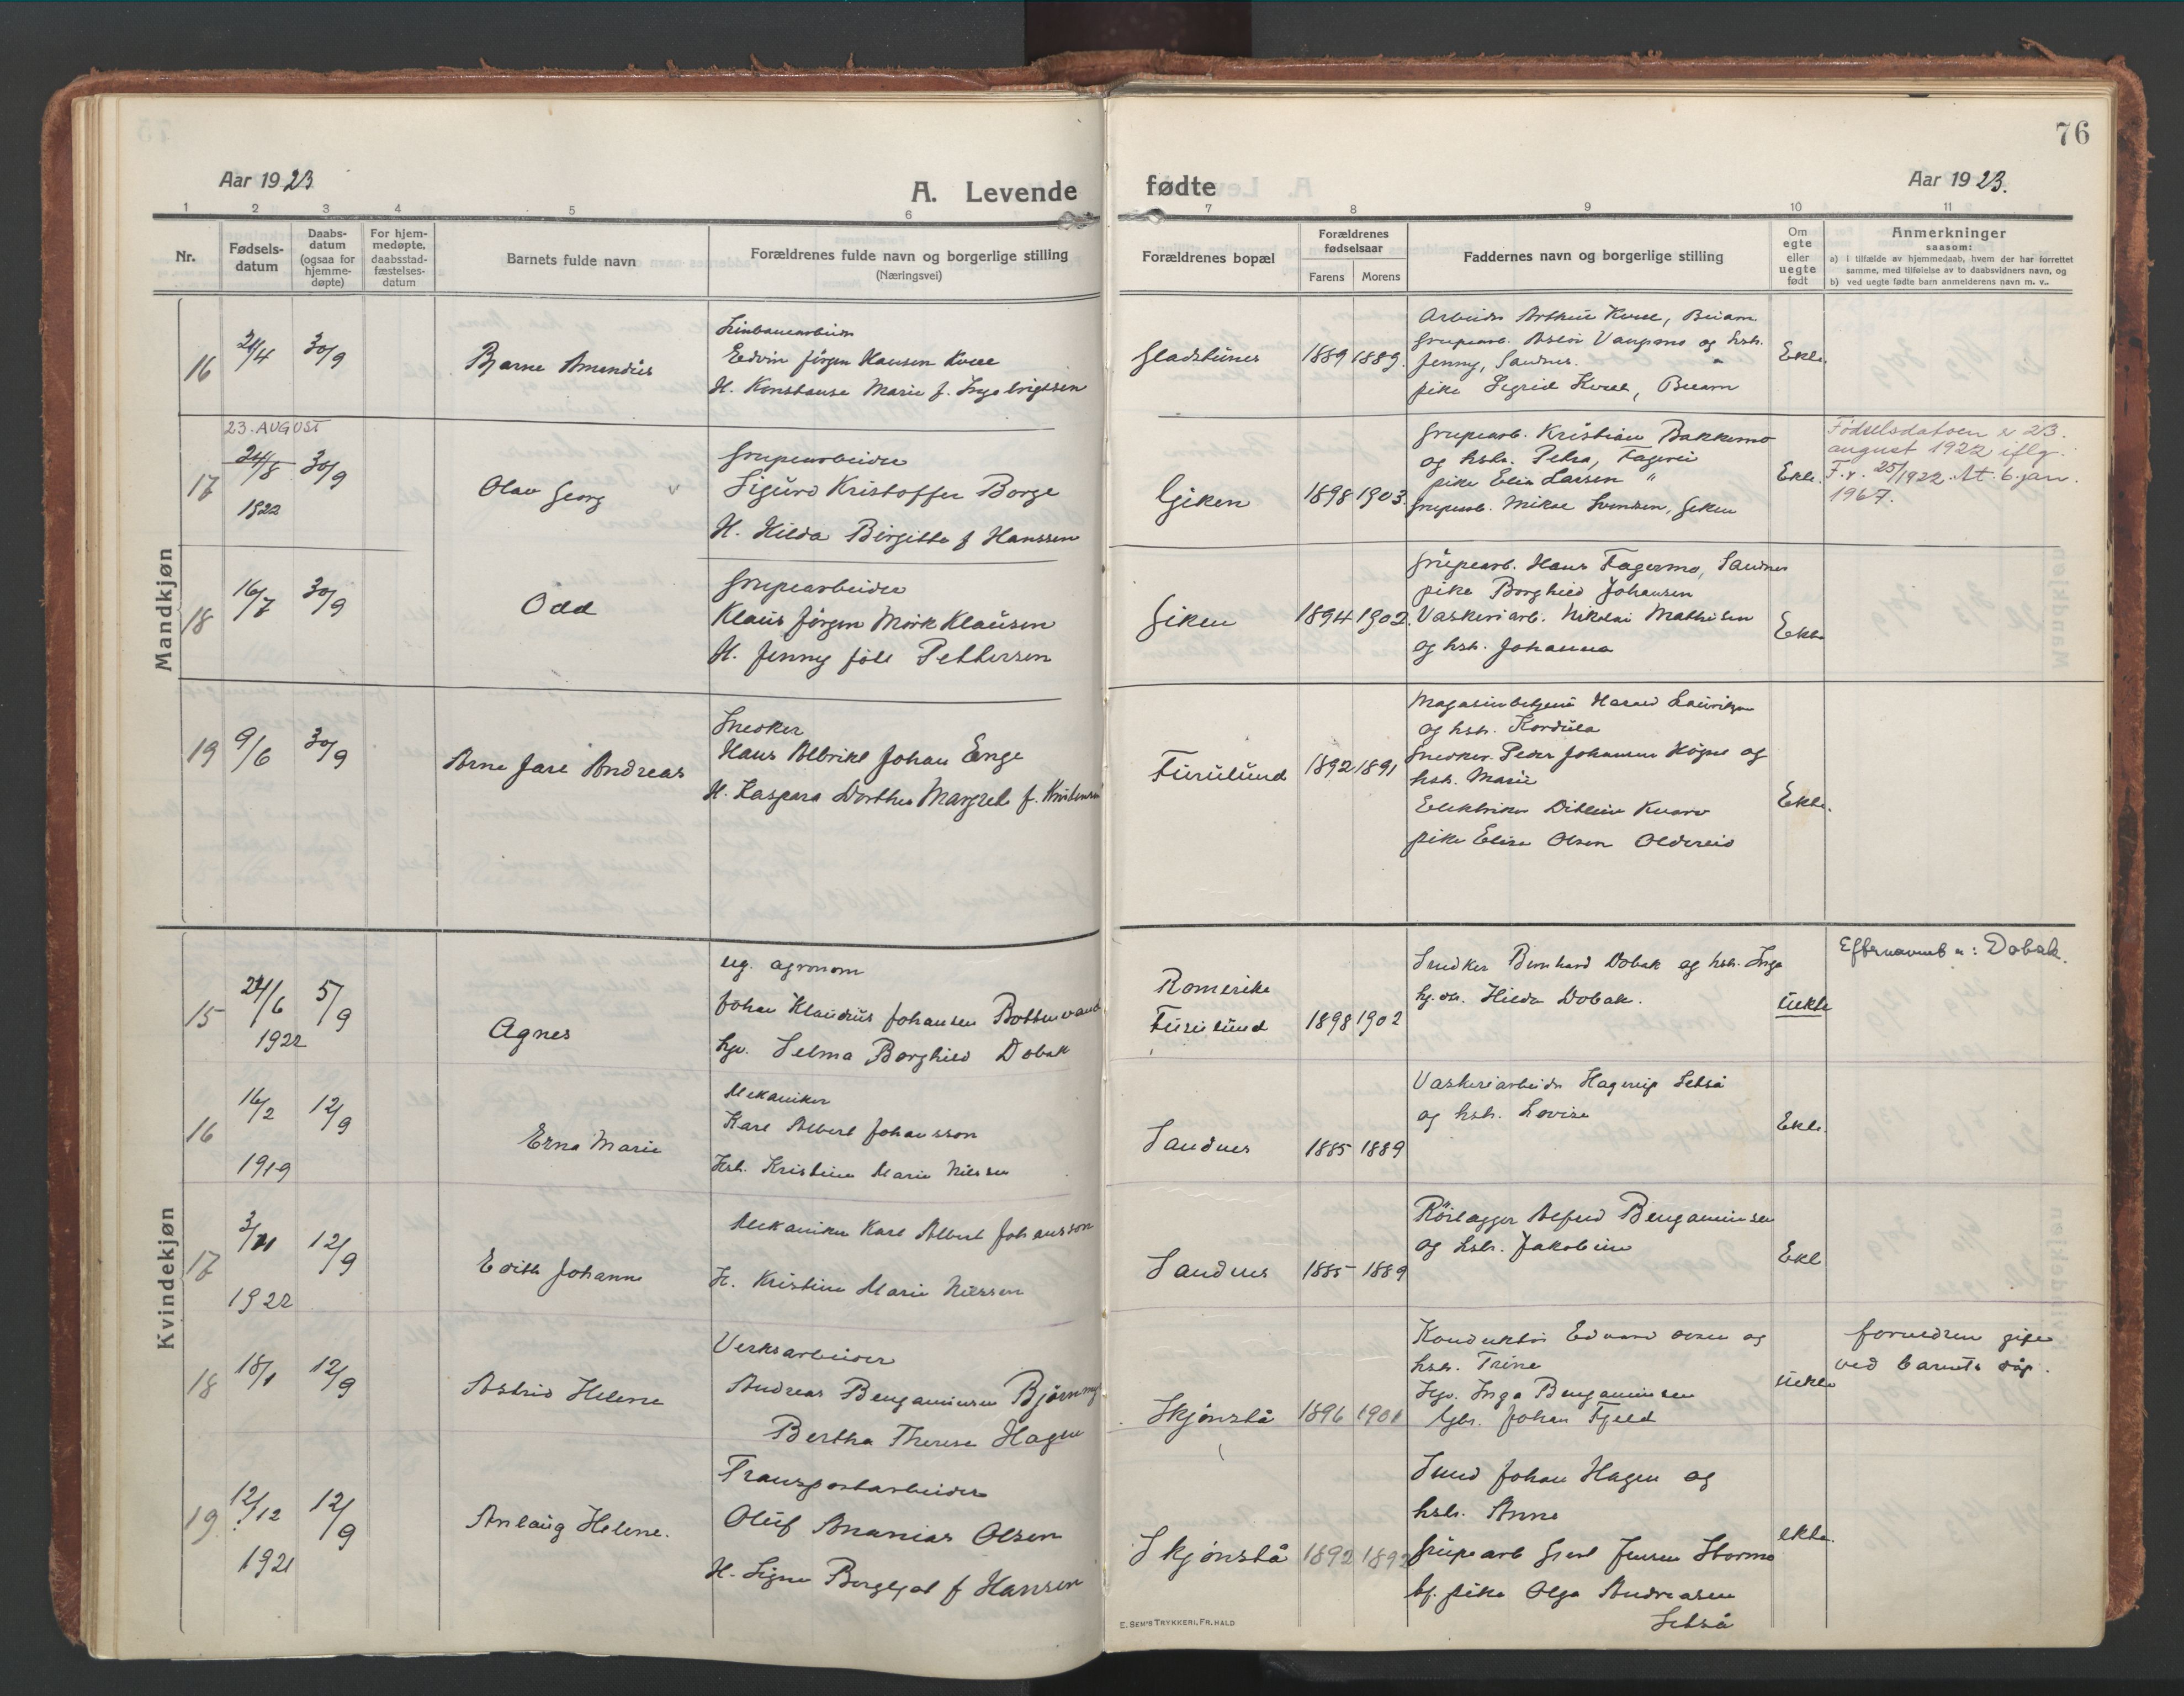 76
Aar 1923
A. Levende
fødte
Aar 1923.
1 2 3 4 5 6 7 8 9 10 11
Nr.
Fødsels-
datum
Daabs-
datum
(ogsaa for
hjemme-
døpte)
For hjem-
medøpte,
daabsstad-
fæstelses-
datum
Barnets fulde navn
Forældrenes fulde navn og borgerlige stilling
(Næringsvei)
Forældrenes bopæl
Forældrenes
fødselsaar
Farens Morens
Faddernes navn og borgerlige stilling
Om
egte
eller
uegte
født
Anmerkninger
saasom:
a) i tilfælde av hjemmedaab, hvem der har forrettet
samme, med tilføielse av to daabsvidners navn, og
b) ved uegte fødte barn anmelderens navn m. v..
Mandkjøn
16 30/9
Bjarne Amandus
Linbanearbeider
Edvin Jørgen Hansen Kvæl
H. Konstanse Marie f. Ingebrigtsen
1889 1889.
Arbeider Arthur Kvæl, Beiarn
og hstr.
Jenny, Sandnes. "
pike Sigrid Kvæl, Beiarn
Ekte.
23. AUGUST
17 24/8 30/9
1922
Olav Georg v
Grupearbeider
Sigurd Kristoffer Borge
H. Hilda Birgitte f Hanssen
Giken 1898 1903.
Grupearb. Kristian Bakkemo
og hstr. Petra, Fagerli
pike Elin Larsen "
Gruparb. Mikal Svendsen, Giken
Ekte.
Fødselsdatoen er 23.
august 1922 iflg.
F.r. 25/1922. At. 6. jan.
1967.
18 16/7 30/9
Odd
Grupearbeider
Klaus Jørgen Mörk Klausen
H. Jenny født Pettersen
Giken 1894 1902.
Grupearb. Hans Fagermo, Sandnes
pike Borghild Johansen
Vaskeriarb. Nikolai Mathisen
og hstr. Johanna
Ekte
19 9/6 30/9
Arne Jarl Andreas
Snedker
Hans Albrikt Johan Enge
H. Kaspara Dorthea Margret f. Kristensen
Furulund 1892 1891
Magasinbetjent Harald Lauritzen
og hstr. Kordula
Snedker Peder Johansen og
hstr. Marie
Elektriker Ditlein
pike Elise Olsen Oldereid
Ekte.
Kvindekjøn
15 24/6 5/9
1922
Agnes
ug. agronom
Johan Klaudius Johansen Bottenvand
hgv. Selma Borghild Dobak
Romerike
Furulund 1898 1902
Snedker Bernhard Dobak og hstr. Inga
Hilda Dobak.
Uekte
Efternavnet er: Dobak.
16 16/2 12/9
1919
Erna Marie
Mekaniker
Karl Albert Johansson
Hstr. Kristine Marie Nilssen
Sandnes 1885 1889
Vaskeriarbeider Hagerup Setså
og hstr. Lovise
Ekte.
17 3/11 12/9
1922
Edith Johanne
Mekaniker Karl Albert Johansson
H. Kristine Marie Nilssen
Sandnes 1885 1889
Rörlægger Alfred Bengaminsen
og hstr. Jakobine
Ekte
18 18/1 12/9
Astrid Helene
Verksarbeider
Andreas Bengaminsen
Bertha Therese Hagen
Skjønstå 1896 1901
Konduktør Edvard Olsen og
hstr. Trine
Hgv. Inga Bengaminsen
Johan Fjeld
Uekte
forældren gift
ved barnets dåp.
19 12/12 12/9
1921
Anlaug Helene.
Transportarbeider
Oluf Ananias Olsen
H. Signe Bergljot f Hansen
Skjønstå 1892 1892
Johan Hagen og
hstr. Anna
Grupearb Jensen Stormo
pike Olga Andreasen
Setså
ekte.
E. SEM'S TRYKKERI, FR. HALD